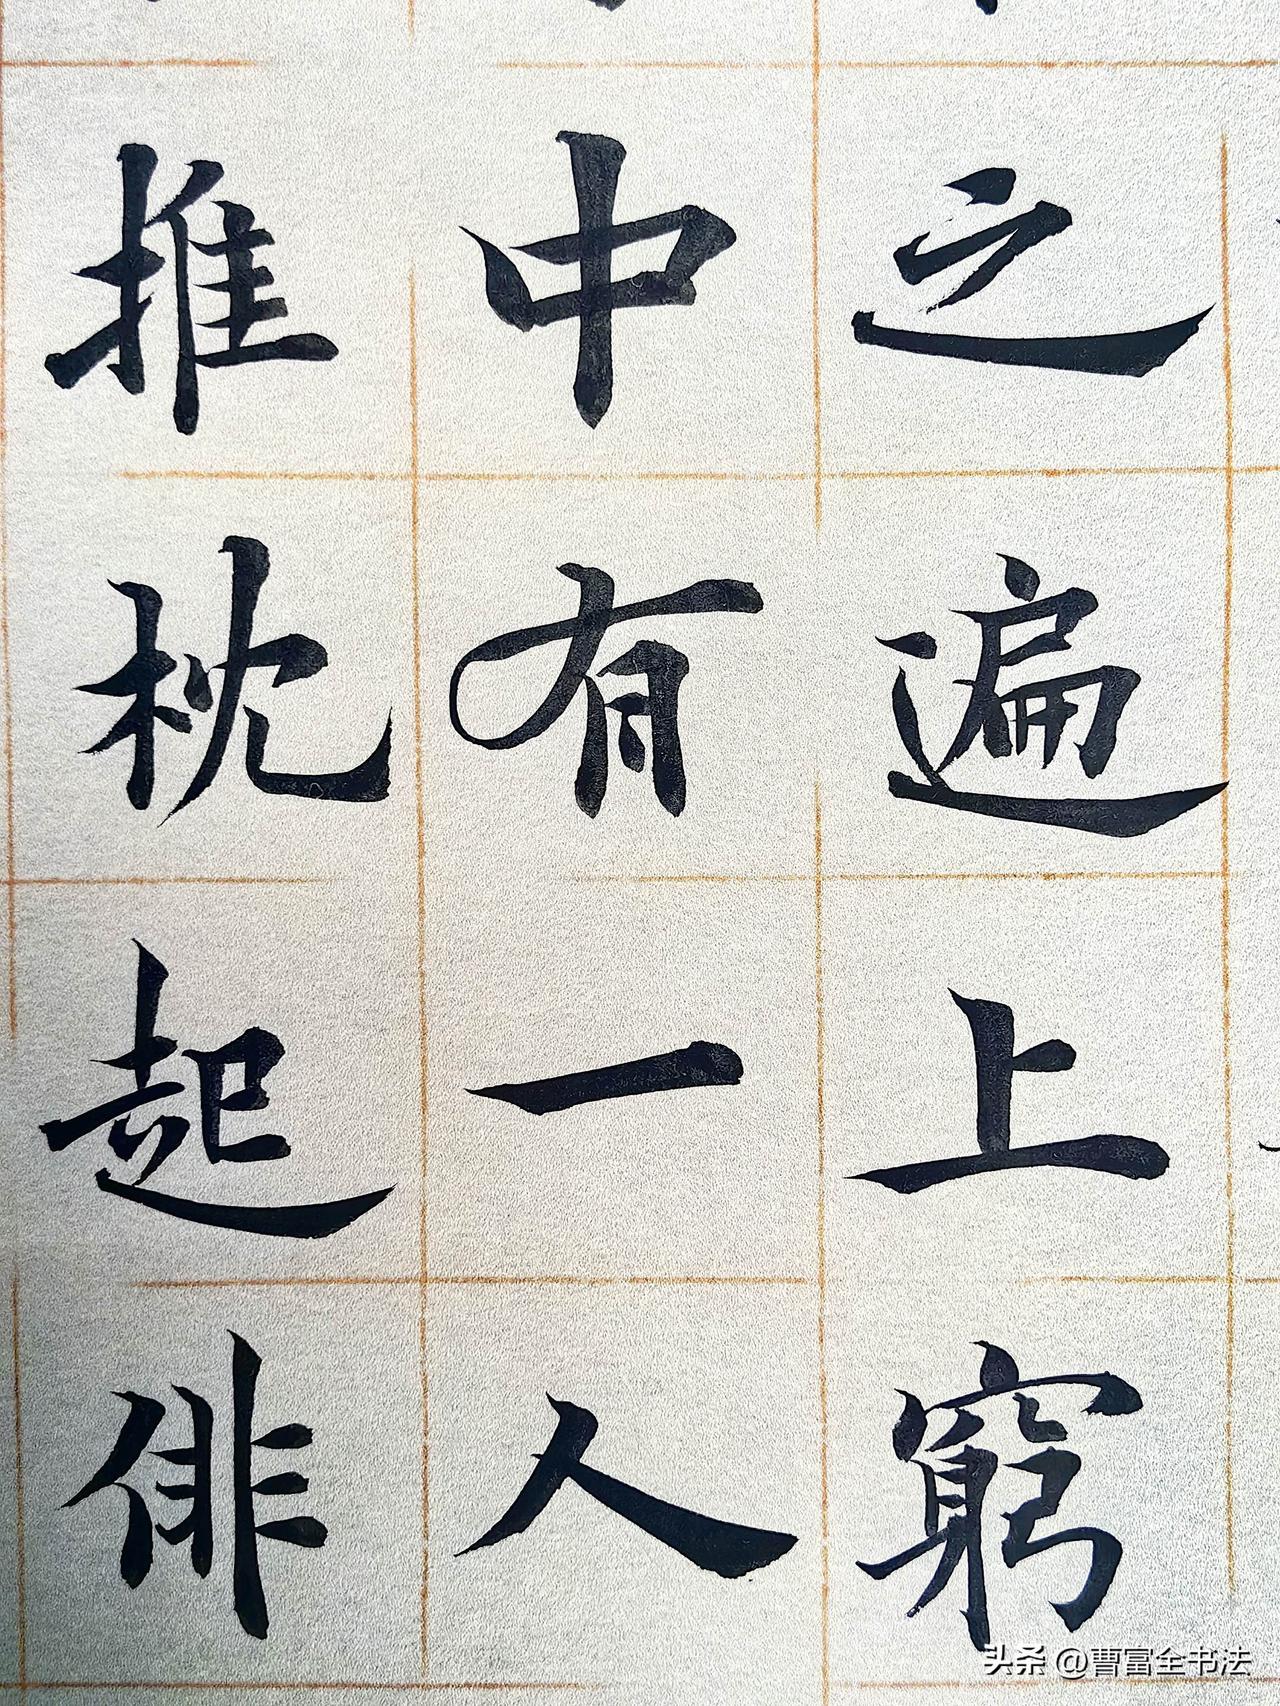 之遍上窮
中有一人
推枕起俳
头条 @曹富全书法